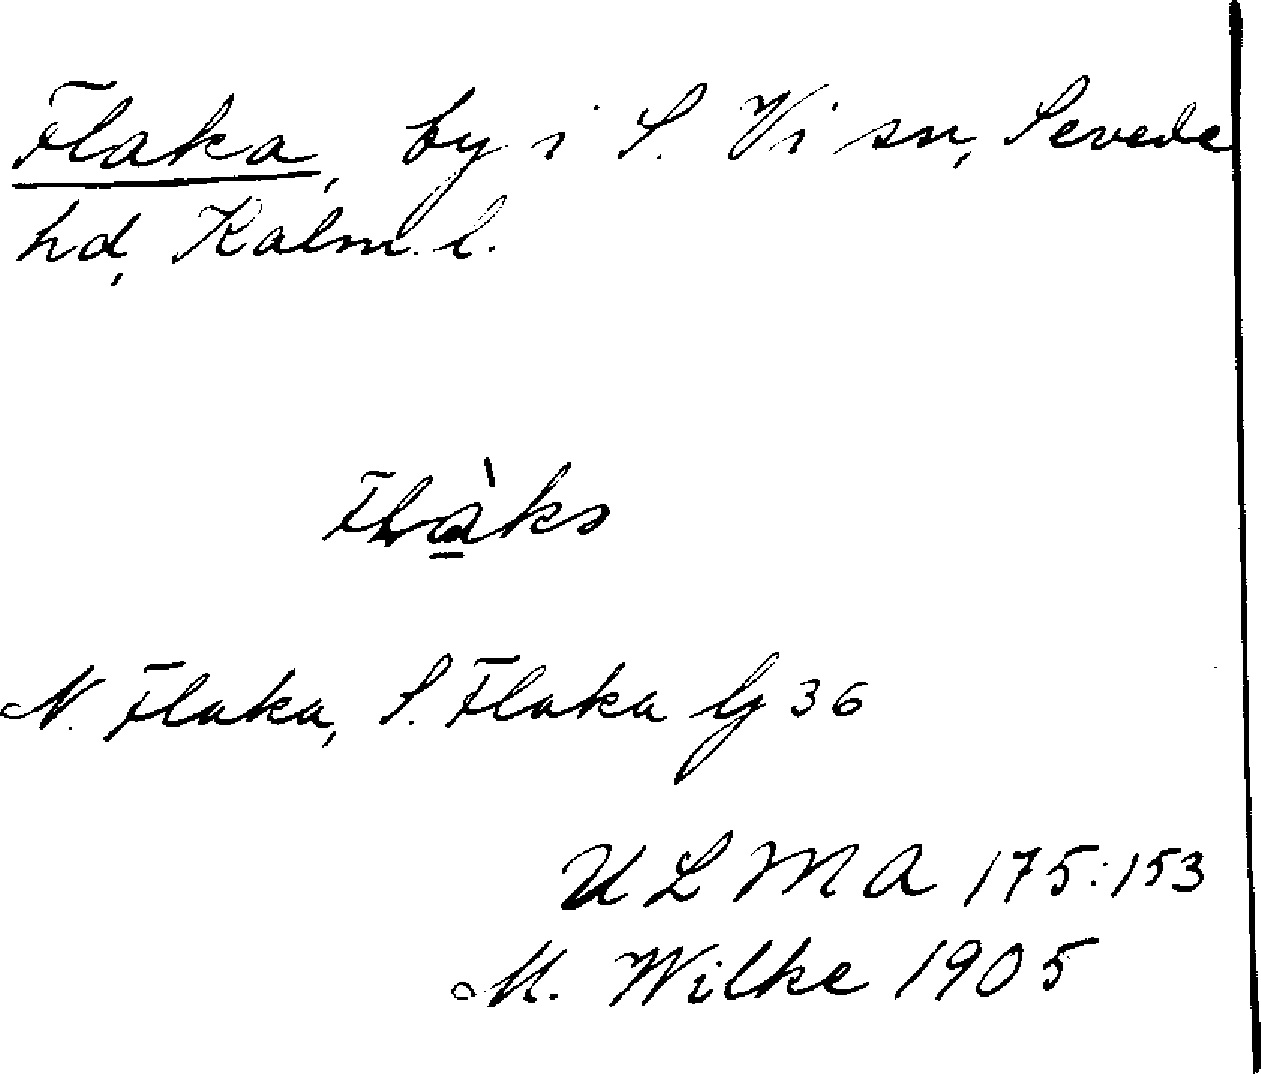 Flaka, by i S. Vi sn, Sevede
hd, Kalm. l.
N. Flaka, S. Flaka Gj 36
ULMA 175:153
M. Wilke 1905